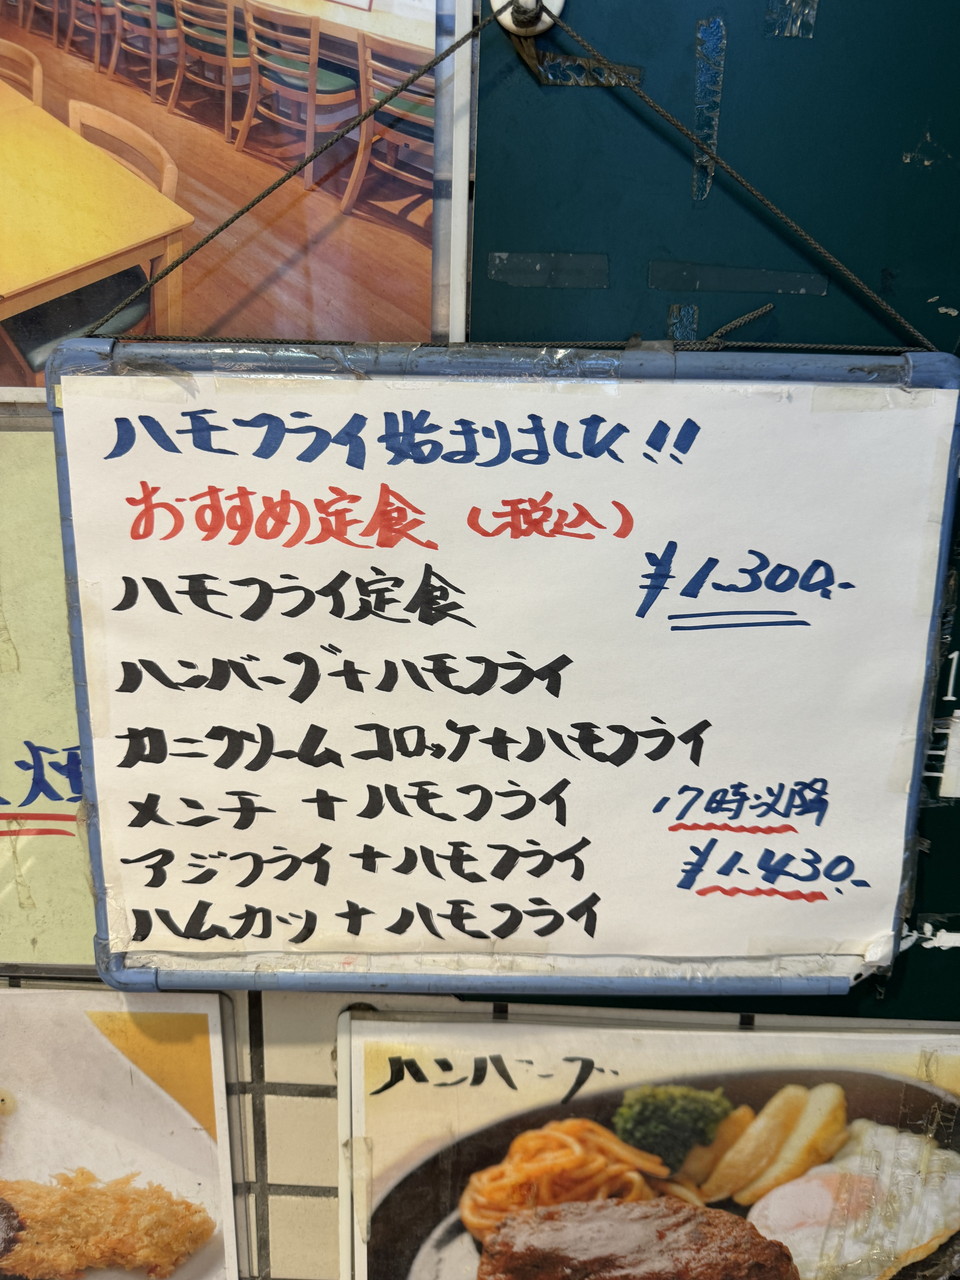 ハモフライ始まりました!!
おすすめ定食 (税込)
ハモフライ定食 ¥1.300.-
ハンバーグ+ハモフライ
カニクリームコロッケ+ハモフライ
メンチ+ハモフライ 17時以降
アジフライ+ハモフライ ¥1.430.-
ハムカツ+ハモフライ
ハンバーグ